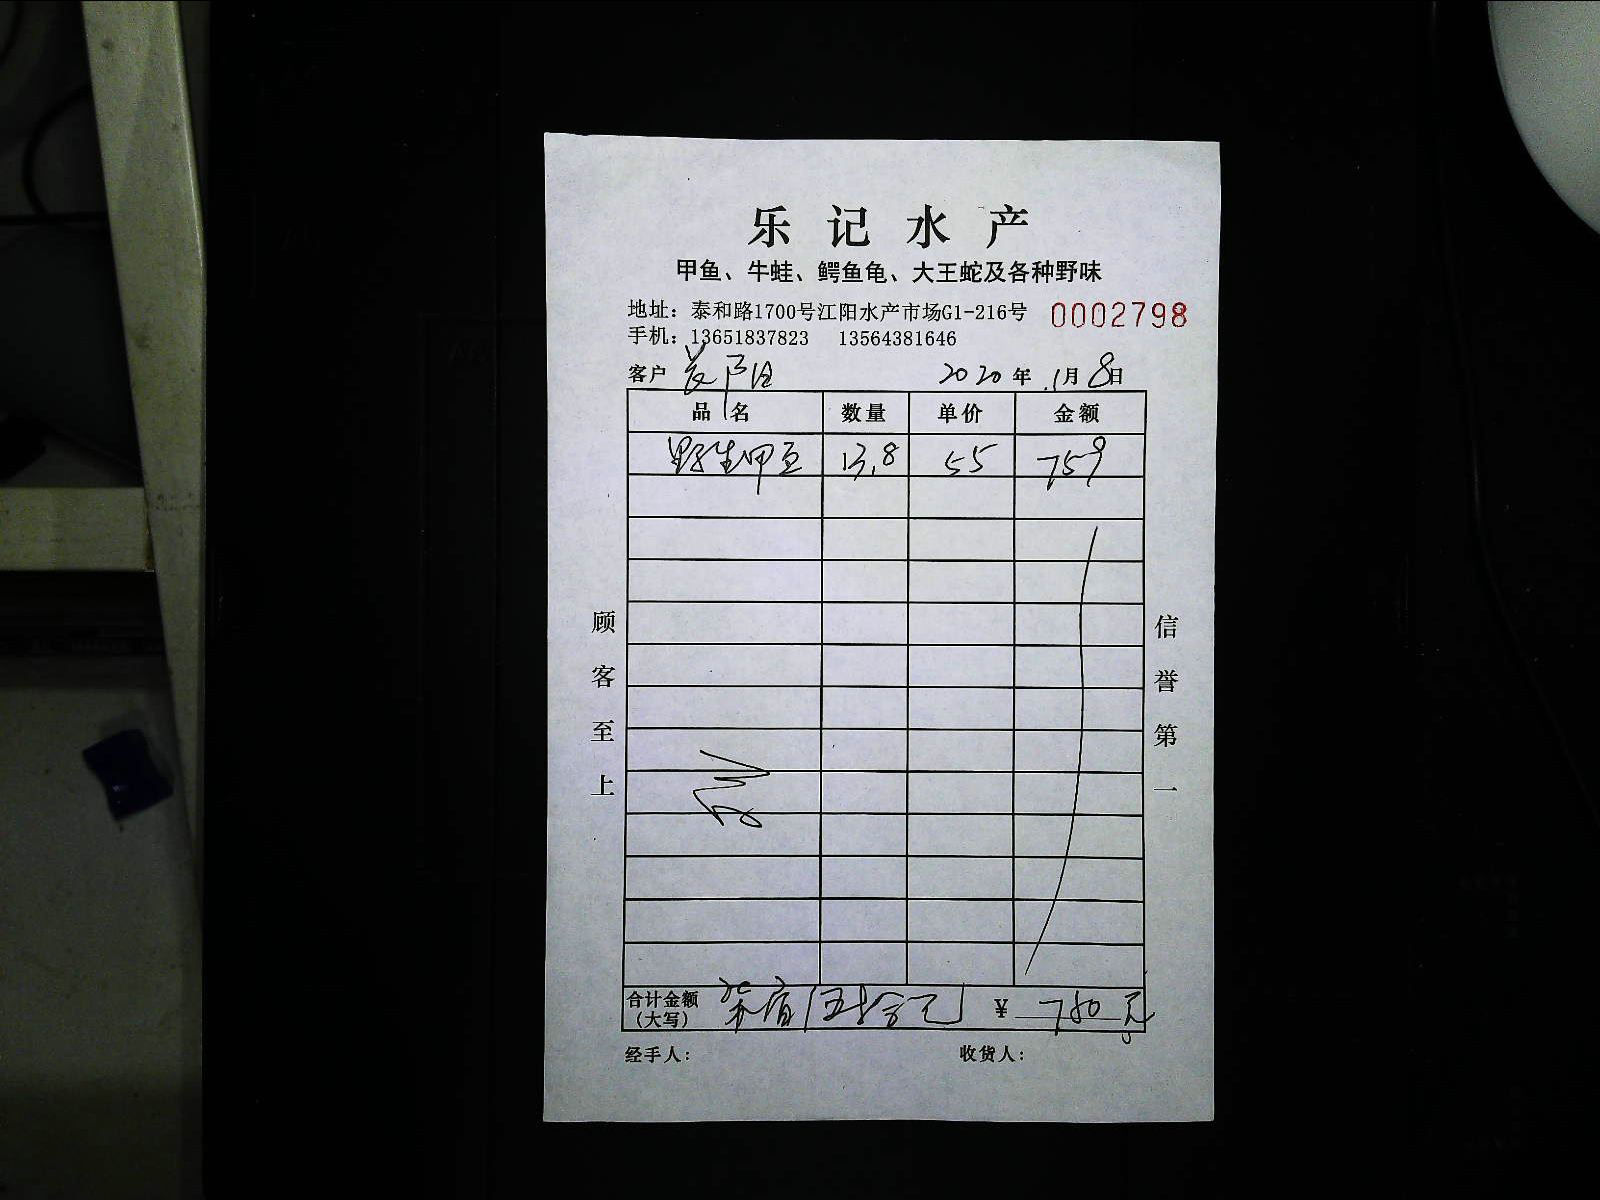 乐记水产
甲鱼、牛蛙、鳄鱼龟、大王蛇及各种野味
地址：泰和路1700号江阳水产市场G1-216号 0002798
手机：13651837823 13564381646
客户 2020年1月8日
品名 数量 单价 金额
野生甲鱼 13.8 55 759
顾客至上
信誉第一
合计金额 柒佰伍拾 元 ¥ 750 元
（大写）
经手人： 收货人：